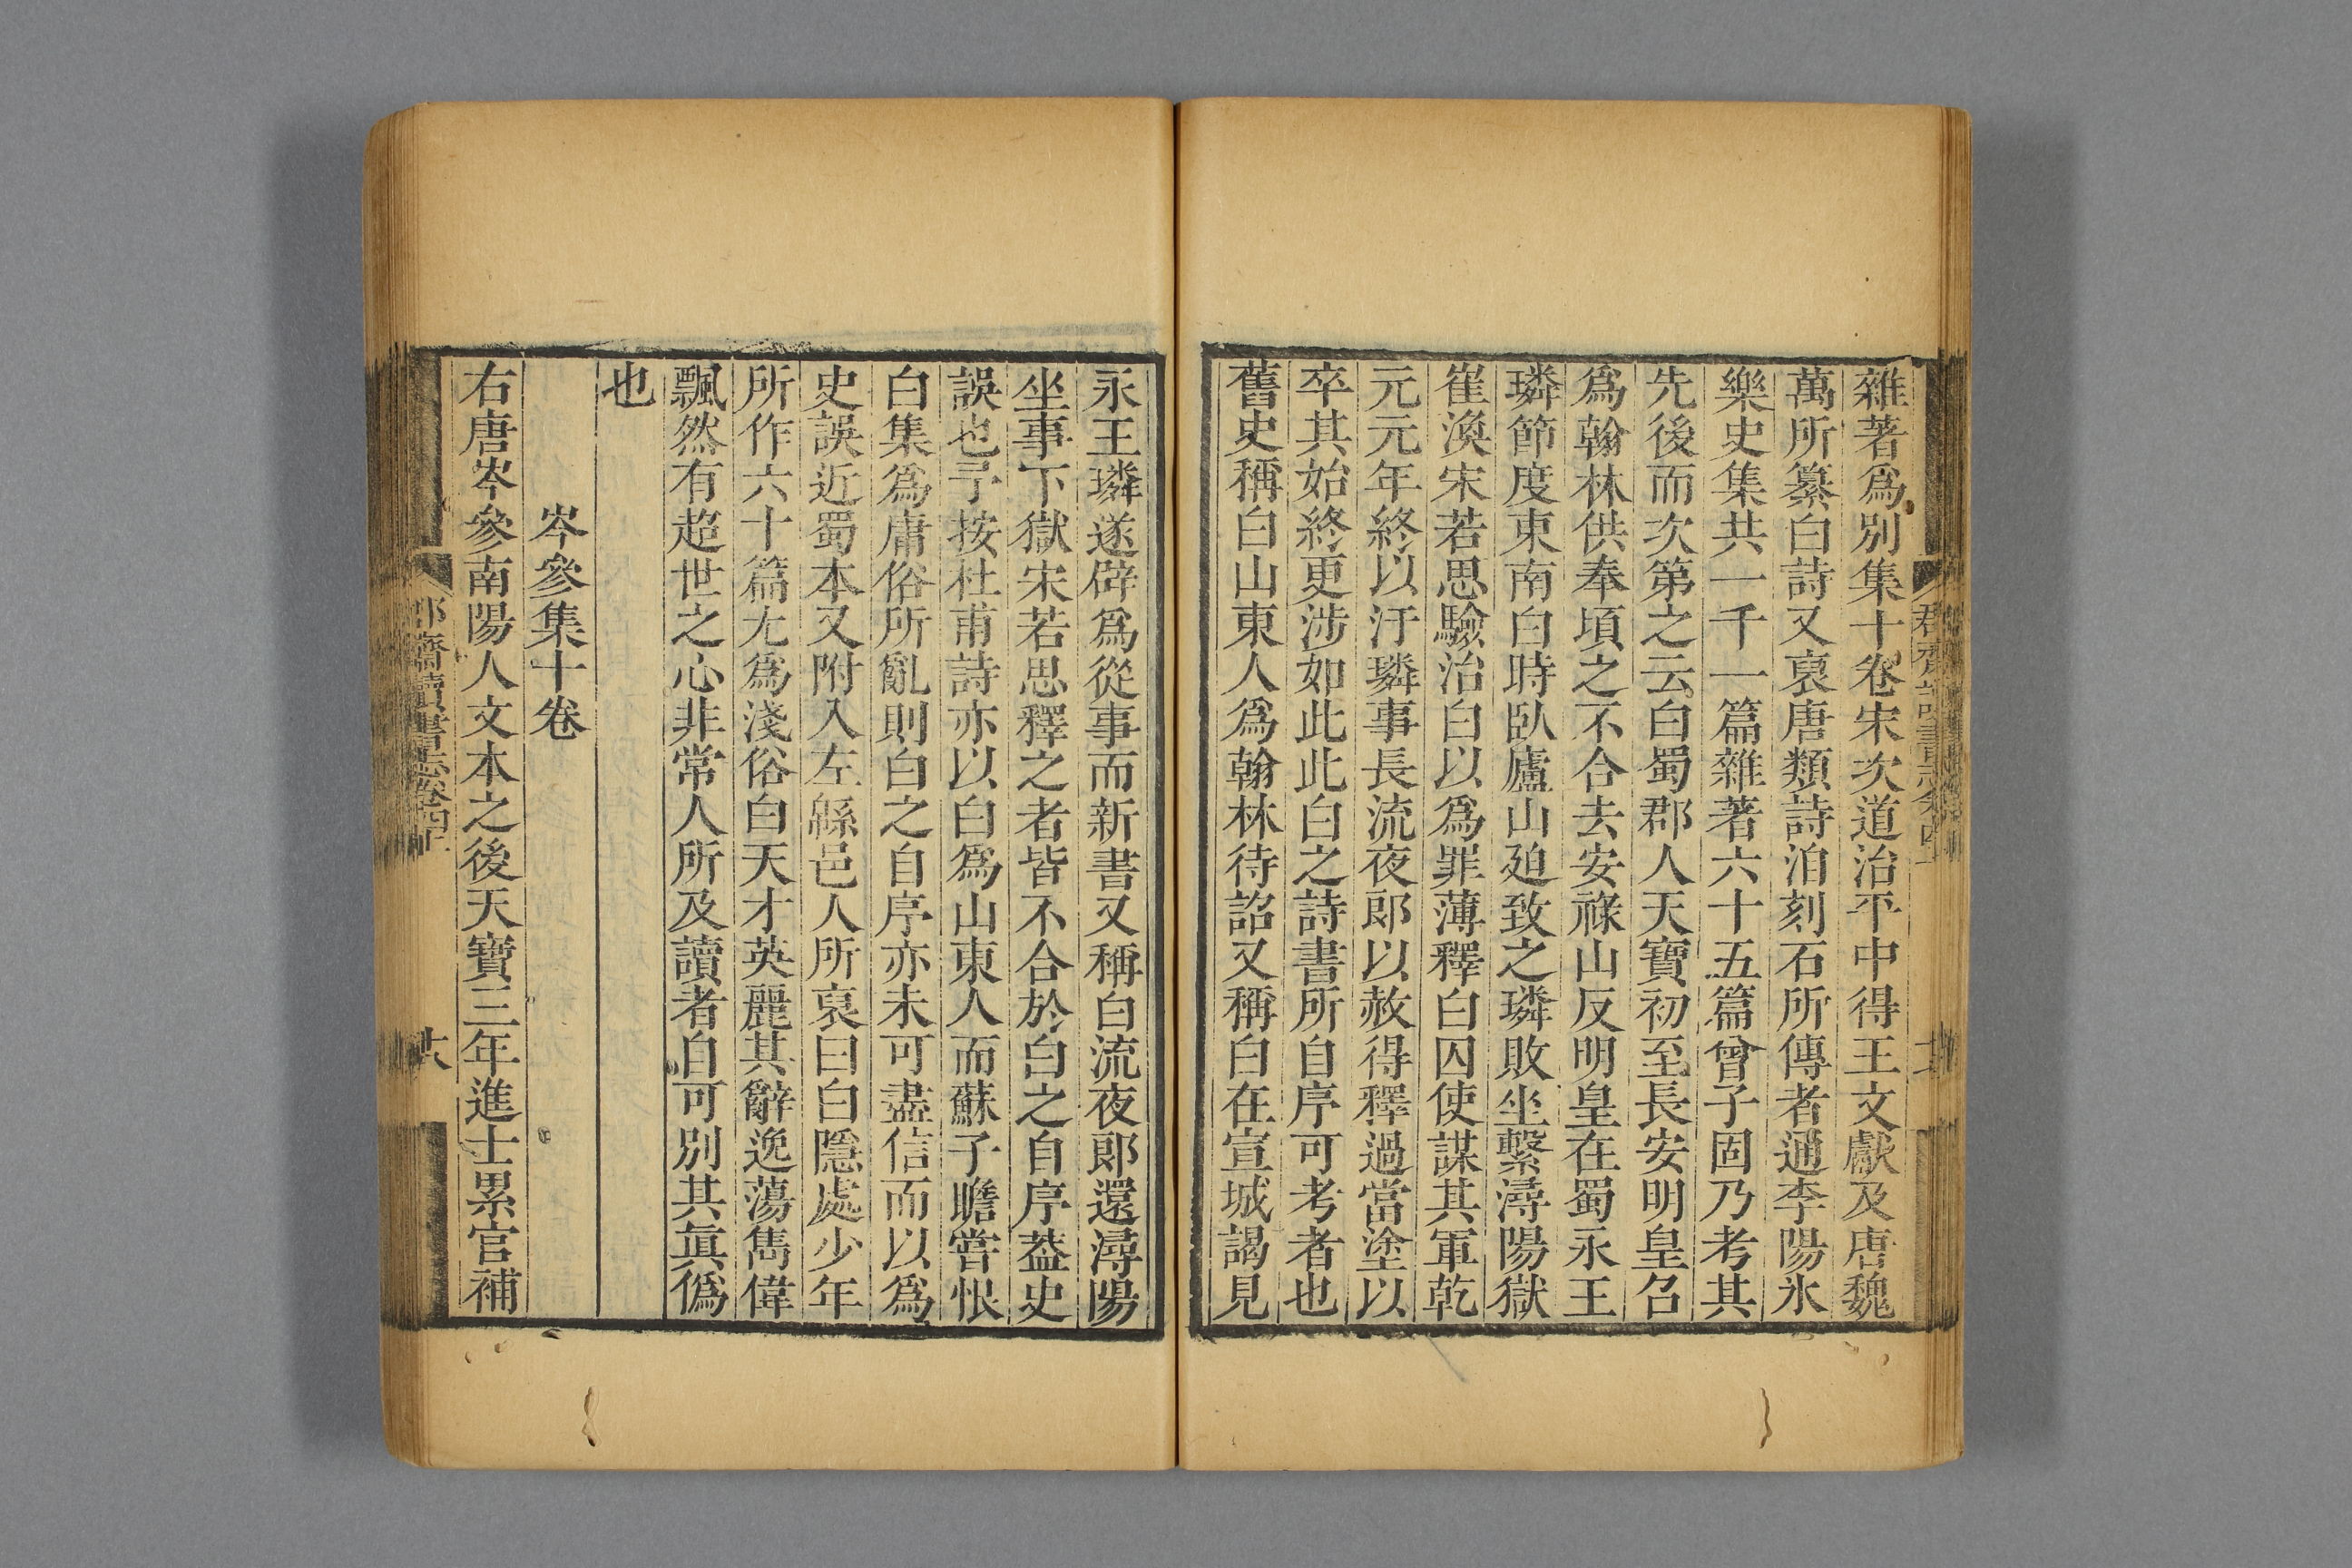 雜著爲別集十卷宋次道治平中得王文獻及唐魏
萬所纂白詩又裒唐類詩洎刻石所傳者通李陽氷
樂史集共一千一篇雜著六十五篇曾子固乃考其
先後而次第之云白蜀郡人天寶初至長安明皇召
爲翰林供奉頃之不合去安祿山反明皇在蜀永王
璘節度東南白時臥廬山廹致之璘敗坐繫潯陽獄
崔渙宋若思驗治白以爲罪薄釋白囚使謀其軍乾
元元年終以汙璘事長流夜郎以赦得釋過當塗以
卒其始終更涉如此此白之詩書所自序可考者也
舊史稱白山東人爲翰林待詔又稱白在宣城謁見
永王璘遂辟爲從事而新書又稱白流夜郎還潯陽
坐事下獄宋若思釋之者皆不合於白之自序葢史
誤也予按杜甫詩亦以白爲山東人而蘇子瞻嘗恨
白集爲庸俗所亂則白之自序亦未可盡信而以爲
史誤近蜀本又附入左緜邑人所裒曰白隱處少年
所作六十篇尤爲淺俗白天才英麗其辭逸蕩雋偉
飄然有超世之心非常人所及讀者自可別其眞僞
也
岑參集十卷
右唐岑參南陽人文本之後天寶三年進士累官補